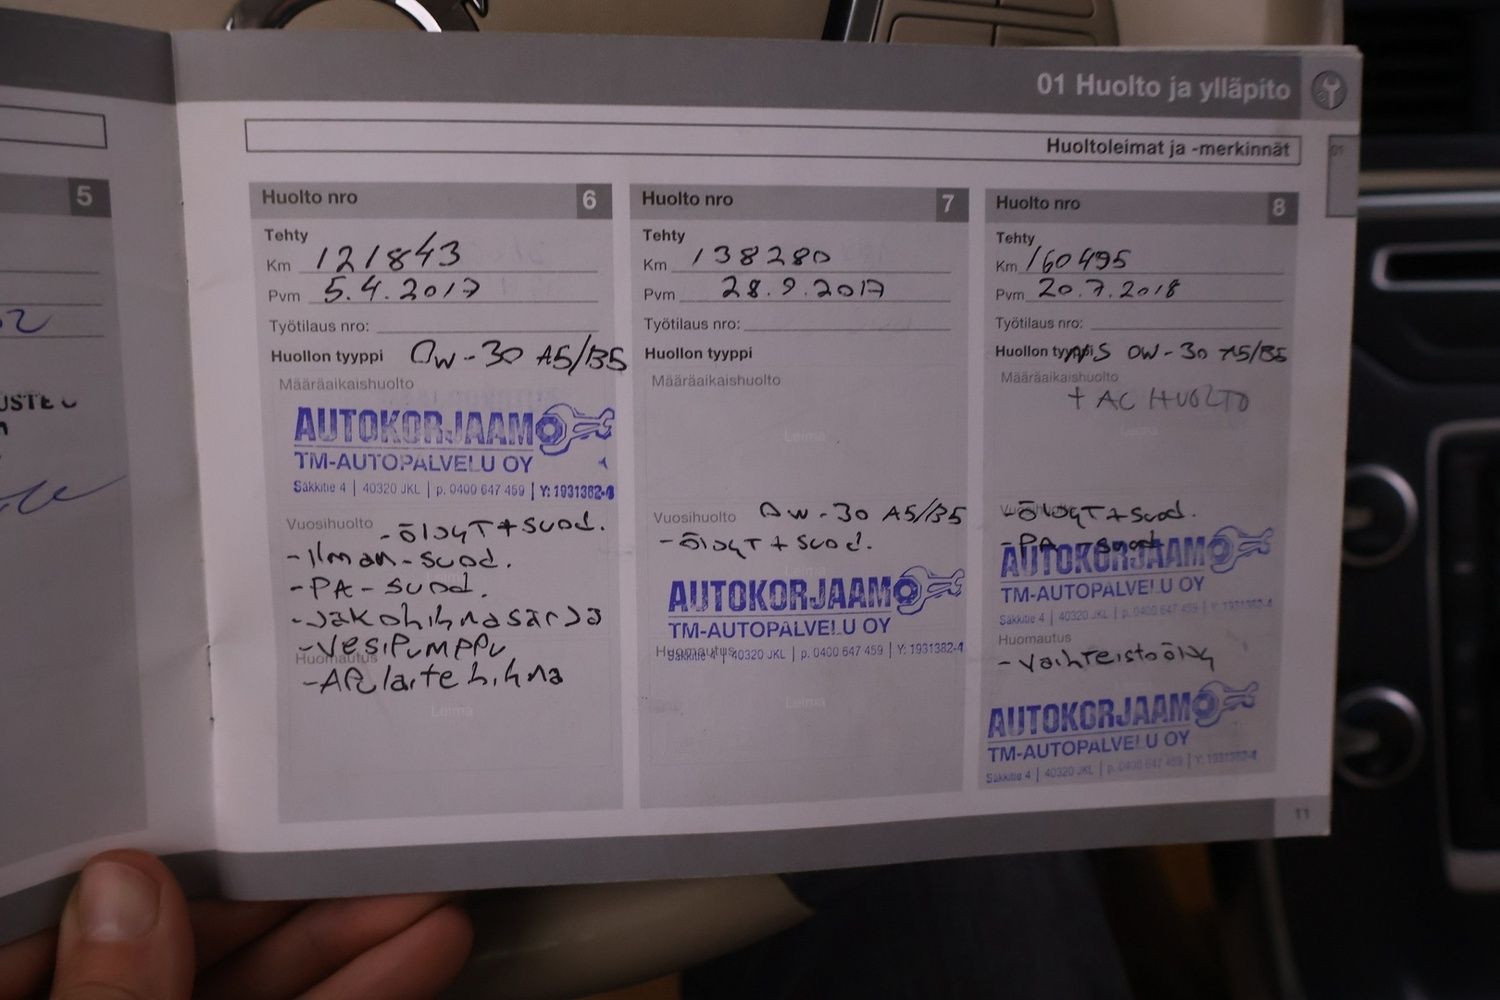 01 Huolto ja ylläpito
01
Huoltoleimat ja -merkinnät
5
Huolto nro 6
Tehty
Km 121843
Pvm 5.4.2017
Työtilaus nro:
Huollon tyyppi 0w-30 A5/B5
Määräaikaishuolto
AUTOKORJAAMO
TM-AUTOPALVELU OY
Säkkitie 4 | 40320 JKL | p. 0400 647 459 | Y: 1931382-4
Vuosihuolto
-öljyt + suod.
-ilman-suod.
-PA-suod.
-Jakohihnasarja
-Vesipumppu
Huomautus
-Apulaitehihna
Leima
Huolto nro 7
Tehty
Km 138280
Pvm 28.9.2017
Työtilaus nro:
Huollon tyyppi
Määräaikaishuolto
Leima
Vuosihuolto 0w-30 A5/B5
-öljyt + suod.
Leima
AUTOKORJAAMO
TM-AUTOPALVELU OY
Huomautus
Säkkitie 4 | 40320 JKL | p. 0400 647 459 | Y: 1931382-4
Leima
Huolto nro 8
Tehty
Km 160495
Pvm 20.7.2018
Työtilaus nro:
Huollon tyyppi 0W-30 A5/B5
Määräaikaishuolto
+ AC HUOLTO
Leima
Vuosihuolto
-öljyt + suod.
-PA-suod
AUTOKORJAAMO
TM-AUTOPALVELU OY
Säkkitie 4 | 40320 JKL | p. 0400 647 459 | Y: 1931382-4
Huomautus
-Vaihteistoöljy
AUTOKORJAAMO
TM-AUTOPALVELU OY
Säkkitie 4 | 40320 JKL | p. 0400 647 459 | Y: 1931382-4
11